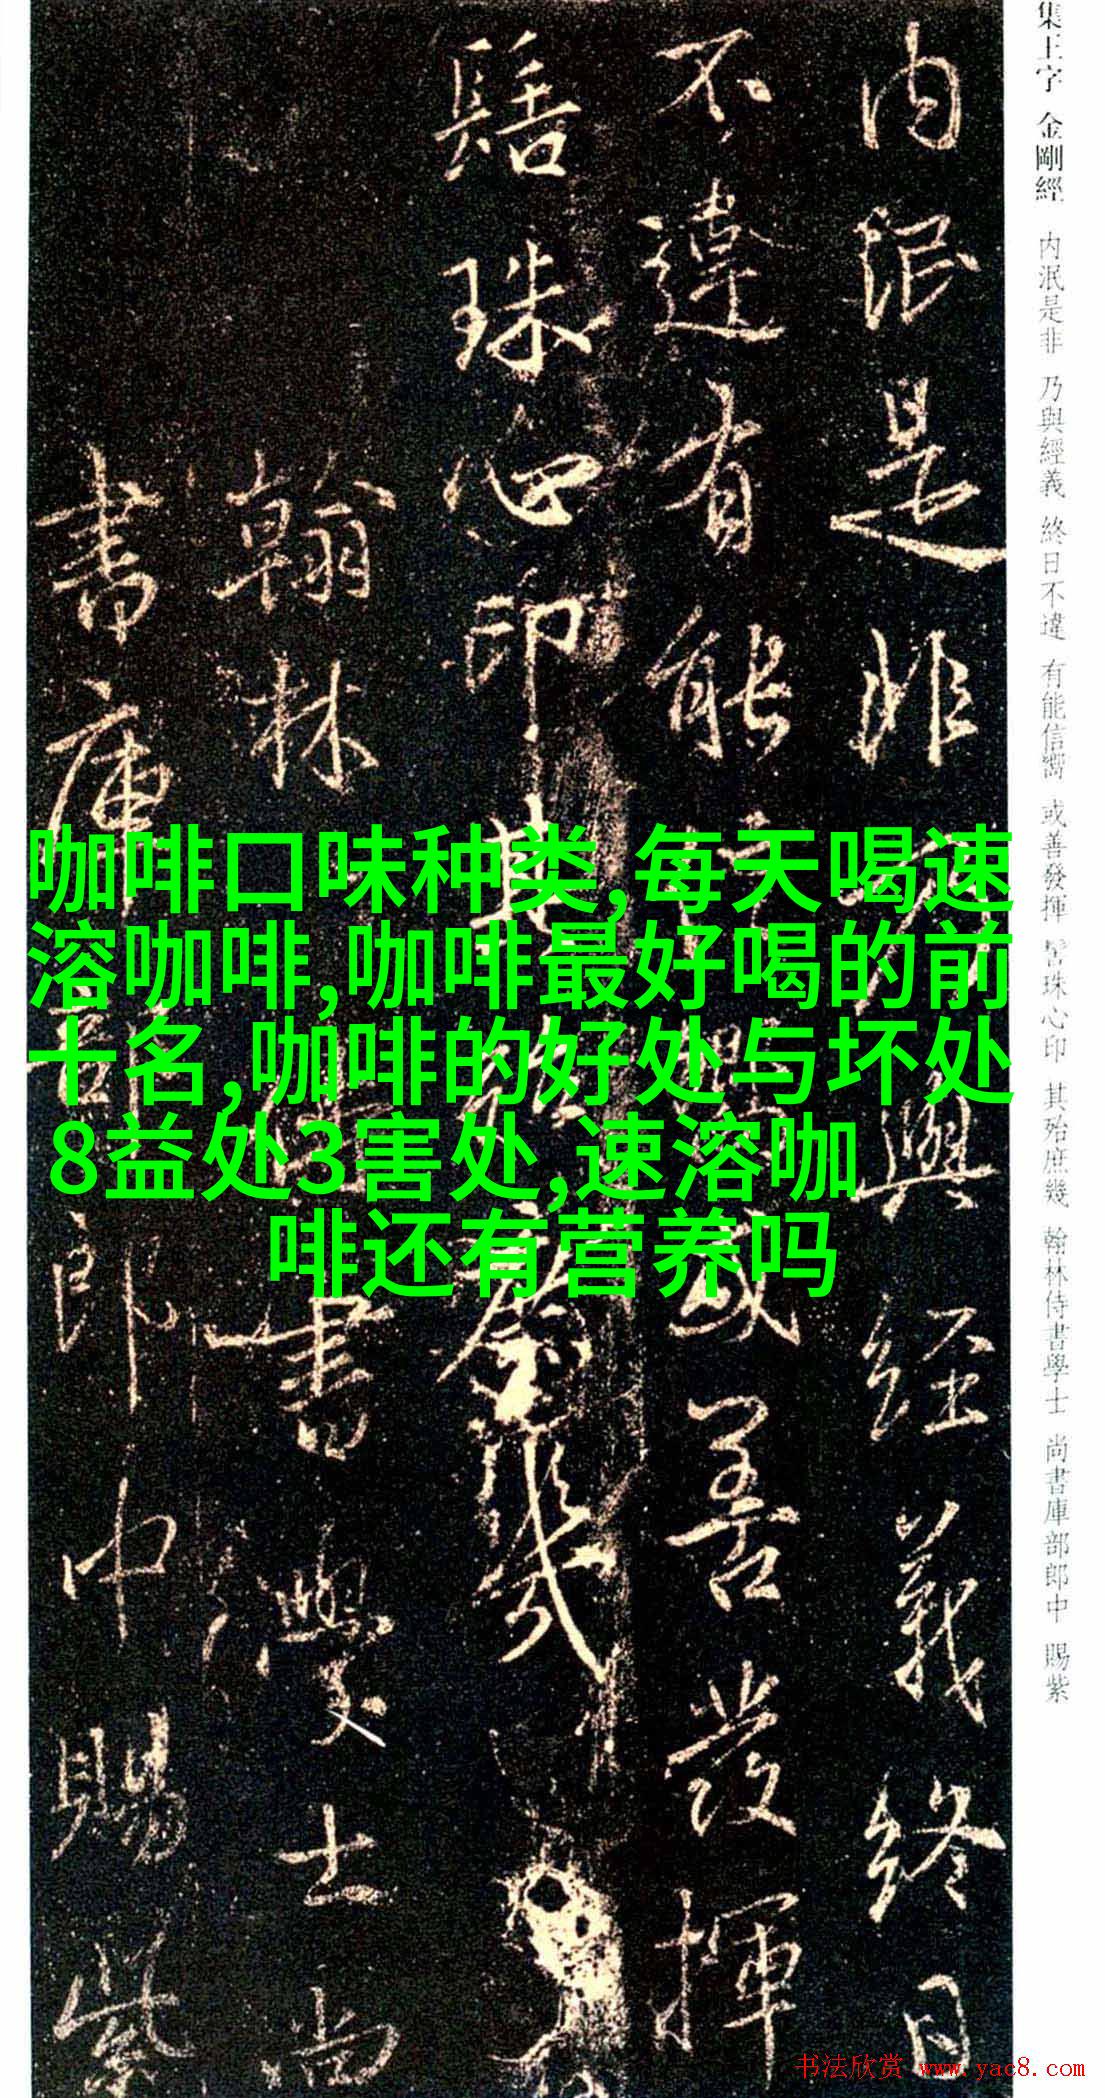 集王字 金剛經 内泯是非 乃與經義 終日不違 有能信嚮 或善發揮 髻珠心印 其殆庶幾 翰林侍書學士 尚書庫部郎中 賜紫
内泯是非乃與經義終日
不違有能信嚮或善發揮
髻珠心印其殆庶幾
翰林侍書學士尚
書庫部郎中賜紫
咖啡口味种类,每天喝速
溶咖啡,咖啡最好喝的前
十名,咖啡的好处与坏处
8益处3害处,速溶咖
啡还有营养吗
书法欣赏 www.yac8.com